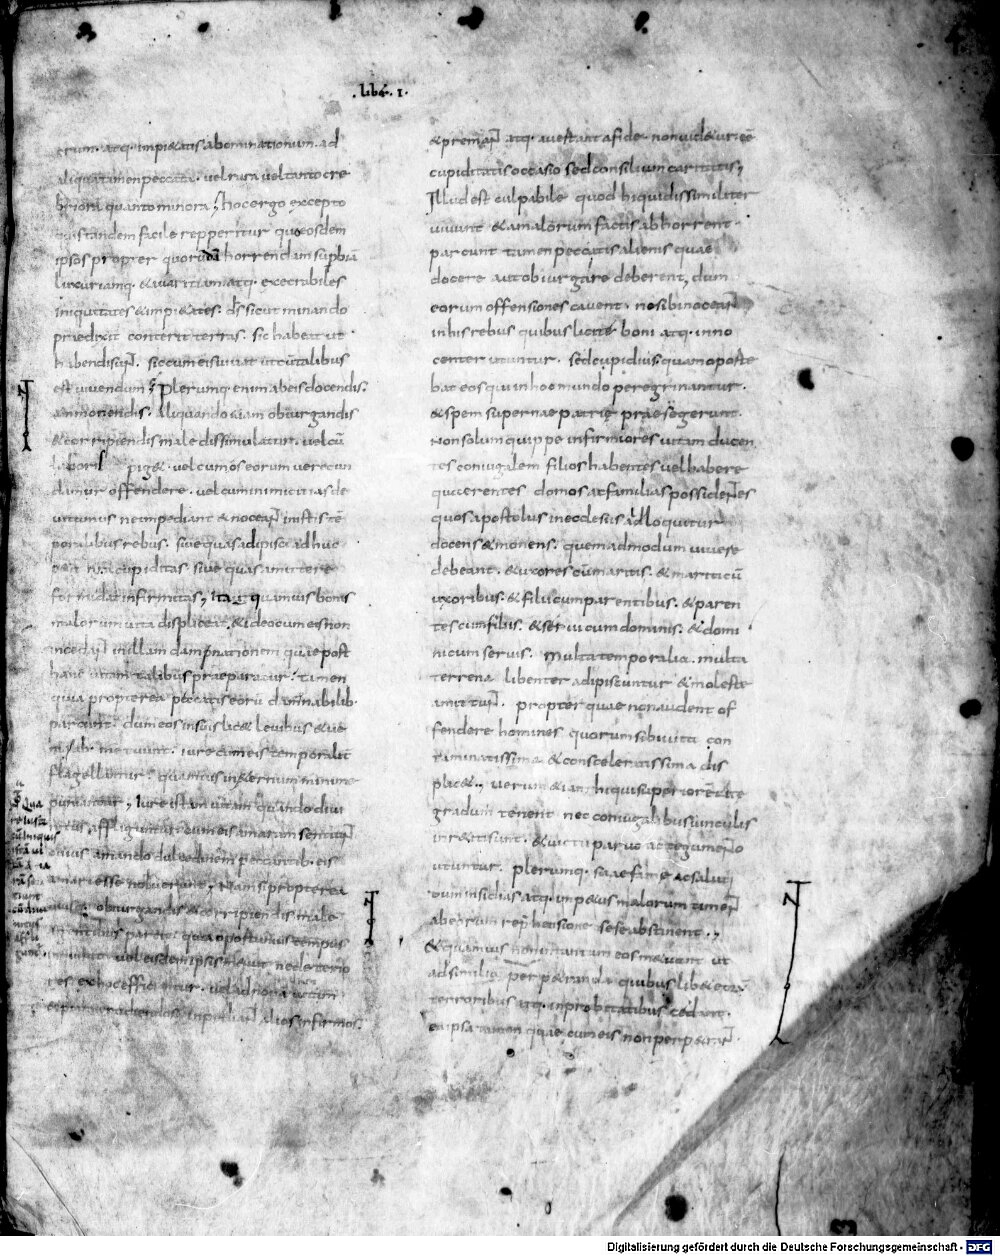 .liber.1.
erum. atq. impi&atis abominationum. ad
aliqua tamen peccata. vel rara vel tanto cre
briora quanto minora; hoc ergo excepto
quis tandem facile repperitur qui eosdem
ipsos propter quorum horrendam supbiā
luxuriamq. & avaritiam. atq. execrabiles
iniquitates & imp&ates. ds sicut minando
praedixit conterit terras. sic habeat ut
habendi sunt. sic cum eis vivat ut cū talibus
est vivendum; Plerumq. enim ab eis docendis.
ammonendis. aliquando etiam obiurgandis
& corripiendis male dissimulatur. vel cū
laboris pig&. vel cum os eorum verecun
damur offendere. vel cum inimicitias de
vitamus ne impediant & noceant in istis tē
poralibus rebus. sive quas adipisci adhuc
cupiditas sive quas amittere
formidat infirmitas; Ita quamvis bonis
malorum vita displiceat. & ideo cum eis non
incedant in illam dampnationem quae post
hanc vitam talibus praeparatur. tamen
quia propterea peccatis eorū damnabilib.
parcunt. dum eos in suis lic& levibus & ve
metuunt. iure cum eis temporalit
flagellantur. quamvis in &ernum minime
puniantur; Iure istam vitam quando divi
affliguntur cum eis amaram sentiunt
cuius amando dulcedinem peccantib. eis
amari esse noluerunt; Nam si propterea
obiurgandis & corripiendis male
parcit. quia oportunius tempus
vel eisdem ipsis m&uit ne deterio
res ex hoc efficiantur. vel ad bonam vitam
alios infirmos.
& premant atq. avertant a fide. non vid&ur eē
cupiditatis occasio sed consilium caritatis;
Illud est culpabile quod hi qui dissimiliter
vivunt & a malorum factis abhorrent.
parcunt tamen peccatis alienis quae
docere aut obiurgare deberent, dum
eorum offensiones cavent. ne sibi noceant
in his rebus quibus licite boni atq. inno
center utuntur. sed cupidius quam oporte
bat eos qui in hoc mundo peregrinantur.
& spem supernae patrię prae se gerunt.
Non solum quippe infirmiores vitam ducen
tes coniugalem filios habentes vel habere
quaerentes domos ac familias possidentes
quos apostolus in ecclesiis adloquitur
docens & monens. quemadmodum vivere
debeant. & uxores cū maritis. & mariti cū
uxoribus. & filii cum parentibus. & paren
tes cum filiis. & servi cum dominis. & domi
ni cum servis. multa temporalia. multa
terrena libenter adipiscuntur & moleste
amittunt. propter quae non audent of
fendere homines quorum sibi vita con
taminatissima & consceleratissima dis
plic&; verum &iam hi qui superiorē vite
gradum tenent nec coniugalibus vinculis
inr&iti sunt. & victu parvo ac tegumento
utuntur. plerumq. suae fame ac saluti
dum insidias atq. imp&us malorum timent
ab eorum reprhensione sese abstinent;
& quamvis non in tantum eos m&uant ut
ad similia perp&randa quibuslib& eorū
terroribus atq. inprobitatibus cedant.
ea ipsa tamen quae cum eis non perp&rant.